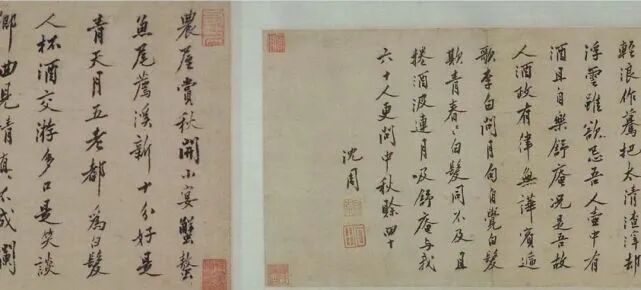 輕浪作驀把太清渣滓却
浮雲雖欲忌吾人壺中有
酒且自樂舒庵況是吾故
人酒政有律無譁賓遍
歌李白問月句自覺白髮
欺青春〻白髮同不及且
捲酒波連月吸舒庵與我
六十人更問中秋賒四十
沈周
農屋賞秋開小宴蟹螯
魚尾薦溪新十分好是
青天月五老都為白髮
人杯酒交游多口是笑談
鄉曲見情真不成闌